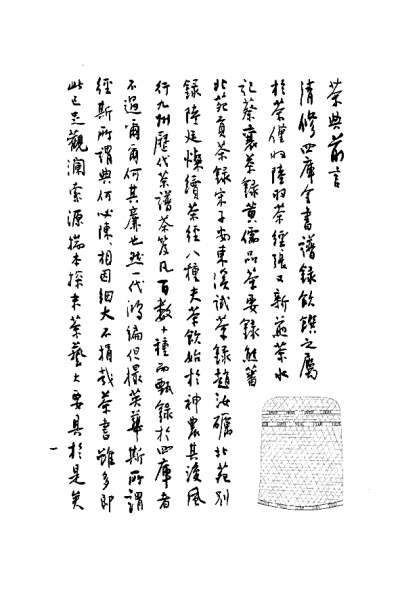 茶典前言
清修四庫全書譜錄飲饌之屬
於茶僅收陸羽茶經張又新煎茶水
記蔡襄茶錄黃儒品茶要錄熊蕃
北苑貢茶錄宋子安東溪試茶錄趙汝礪北苑別
錄陸廷燦續茶經八種夫茶飲始於神農其後風
行九州歷代茶譜茶笈凡百數十種而甄錄於四庫者
不過爾爾何其廉也然一代鴻編但撮英華斯所謂
經斯所謂典何必陳陳相因細大不捐哉茶書雖多即
此已足觀瀾索源揣本探末茶藝之要具於是矣
一